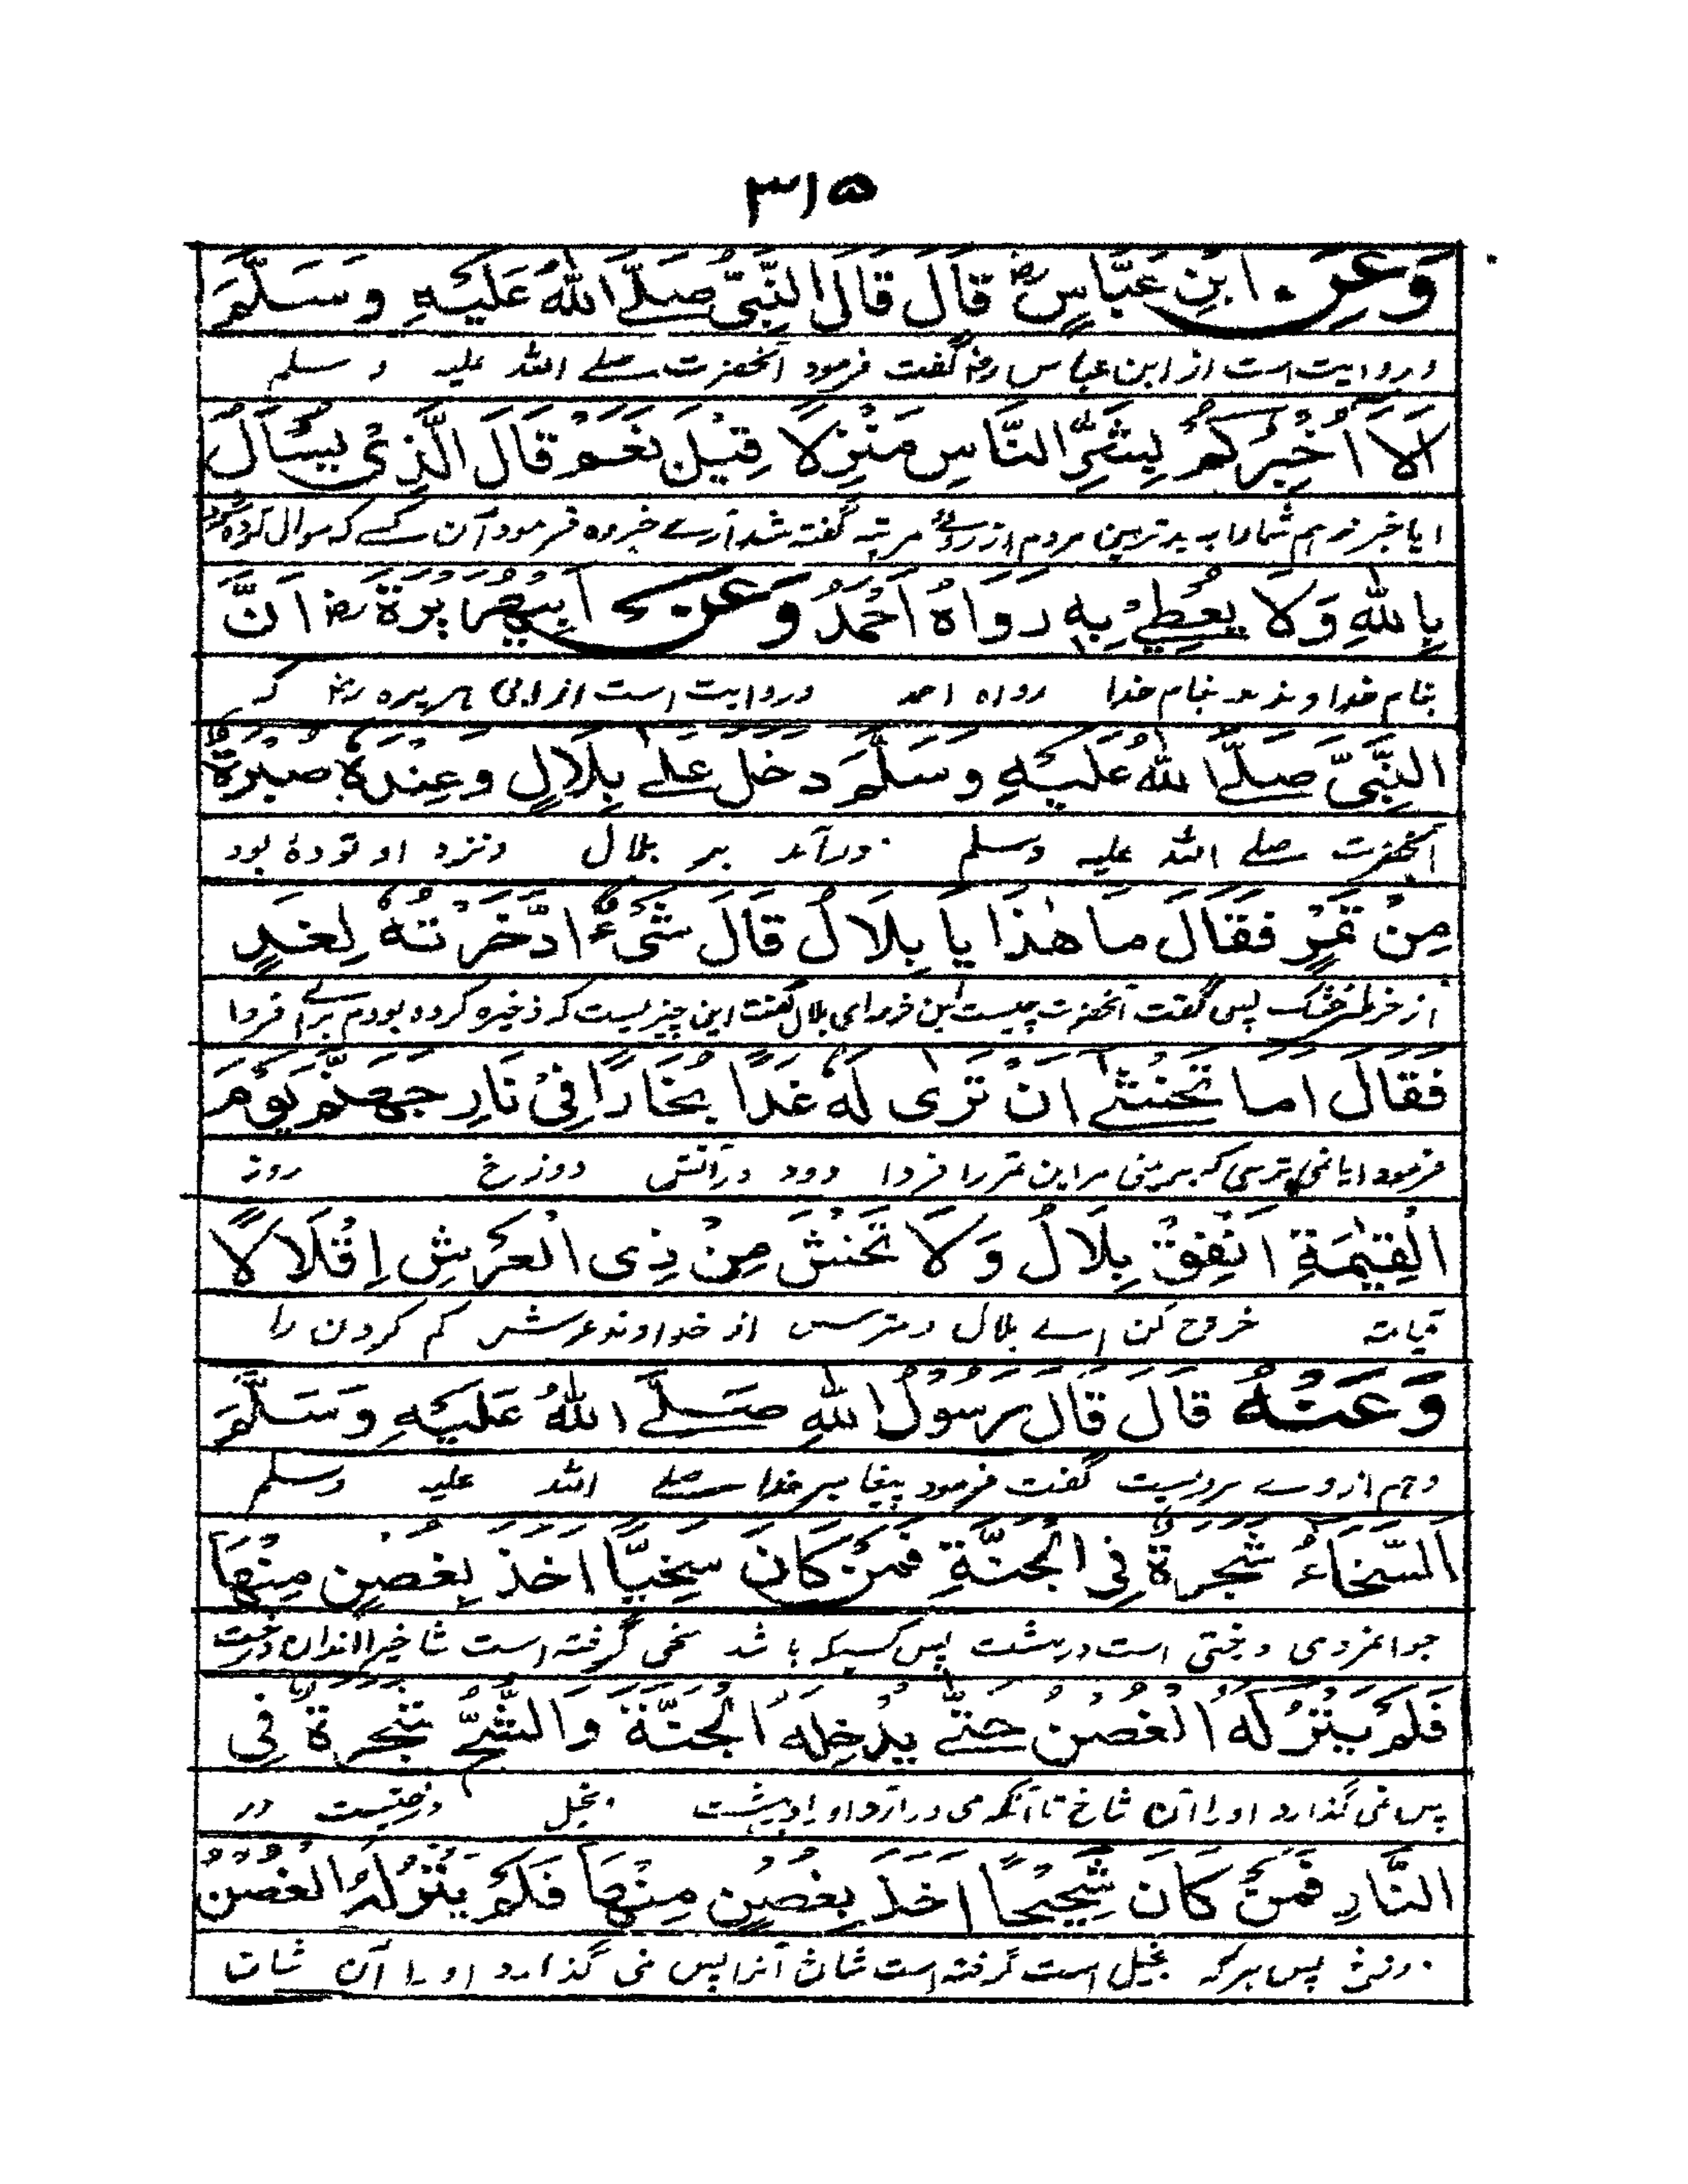 ۳۱۵
وَعَنِ ابْنِ عَبَّاسٍ رض قَالَ قَالَ النَّبِيُّ صَلَّے اللّٰهُ عَلَيْهِ وَسَلَّمَ
و روایت است از ابن عباس رض گفت فرمود آنحضرت صلے اللہ علیہ و سلم
اَلَا اُخْبِرُكُمْ بِشَرِّ النَّاسِ مَنْزِلًا قِيْلَ نَعَمْ قَالَ الَّذِیْ يُسْأَلُ
ایا خبر ندهم شما را به بدترین مردم از روئے مرتبه گفته شد آرے خبر ده فرمود آن کسے که سوال کرده شود
بِاللّٰهِ وَلَا يُعْطِیْ بِهٖ رَوَاهُ اَحْمَدُ وَعَنْ اَبِيْ هُرَيْرَةَ رض اَنَّ
بنام خدا و ندهد بنام خدا رواه احمد و روایت است از ابی هریره رض که
النَّبِيَّ صَلَّے اللّٰهُ عَلَيْهِ وَسَلَّمَ دَخَلَ عَلٰے بِلَالٍ وَعِنْدَهٗ صُبْرَةٌ
آنحضرت صلے اللہ علیہ وسلم درآمد بر بلال و نزد او تودهٔ بود
مِنْ تَمْرٍ فَقَالَ مَا هٰذَا يَا بِلَالُ قَالَ شَیْءٌ ادَّخَرْتُهٗ لِغَدٍ
از خرمائے خشک پس گفت آنحضرت چیست این خرما ای بلال گفت این چیزیست که ذخیره کرده بودم برائے فردا
فَقَالَ اَمَا تَخْشٰے اَنْ تَرٰی لَهٗ غَدًا بُخَارًا فِیْ نَارِ جَهَنَّمَ يَوْمَ
فرمود ایا نمی ترسی که به بینی مر این تمر را فردا دود در آتش دوزخ روز
الْقِيٰمَةِ اَنْفِقْ بِلَالُ وَلَا تَخْشَ مِنْ ذِی الْعَرْشِ اِقْلَالًا
قیامة خرچ کن اے بلال و مترس از خداوند عرش کم کردن را
وَعَنْهُ قَالَ قَالَ رَسُوْلُ اللّٰهِ صَلَّے اللّٰهُ عَلَيْهِ وَسَلَّمَ
و هم از وے مرویست گفت فرمود پیغامبر خدا صلے اللہ علیہ وسلم
اَلسَّخَاءُ شَجَرَةٌ فِی الْجَنَّةِ فَمَنْ كَانَ سَخِيًّا اَخَذَ بِغُصْنٍ مِنْهَا
جوانمردی درختی است در بهشت پس کسیکه باشد سخی گرفته است شاخیرا از ان درخت
فَلَمْ يَتْرُكْهُ الْغُصْنُ حَتّٰے يُدْخِلَهُ الْجَنَّةَ وَالشُّحُّ شَجَرَةٌ فِی
پس نمی گذارد او را آن شاخ تا آنکه می در آرد او را در بهشت و بخل درختیست در
النَّارِ فَمَنْ كَانَ شَحِيْحًا اَخَذَ بِغُصْنٍ مِنْهَا فَلَمْ يَتْرُكْهُ الْغُصْنُ
دوزخ پس هر که بخیل است گرفته است شاخ آنرا پس نمی گذارد او را آن شاخ